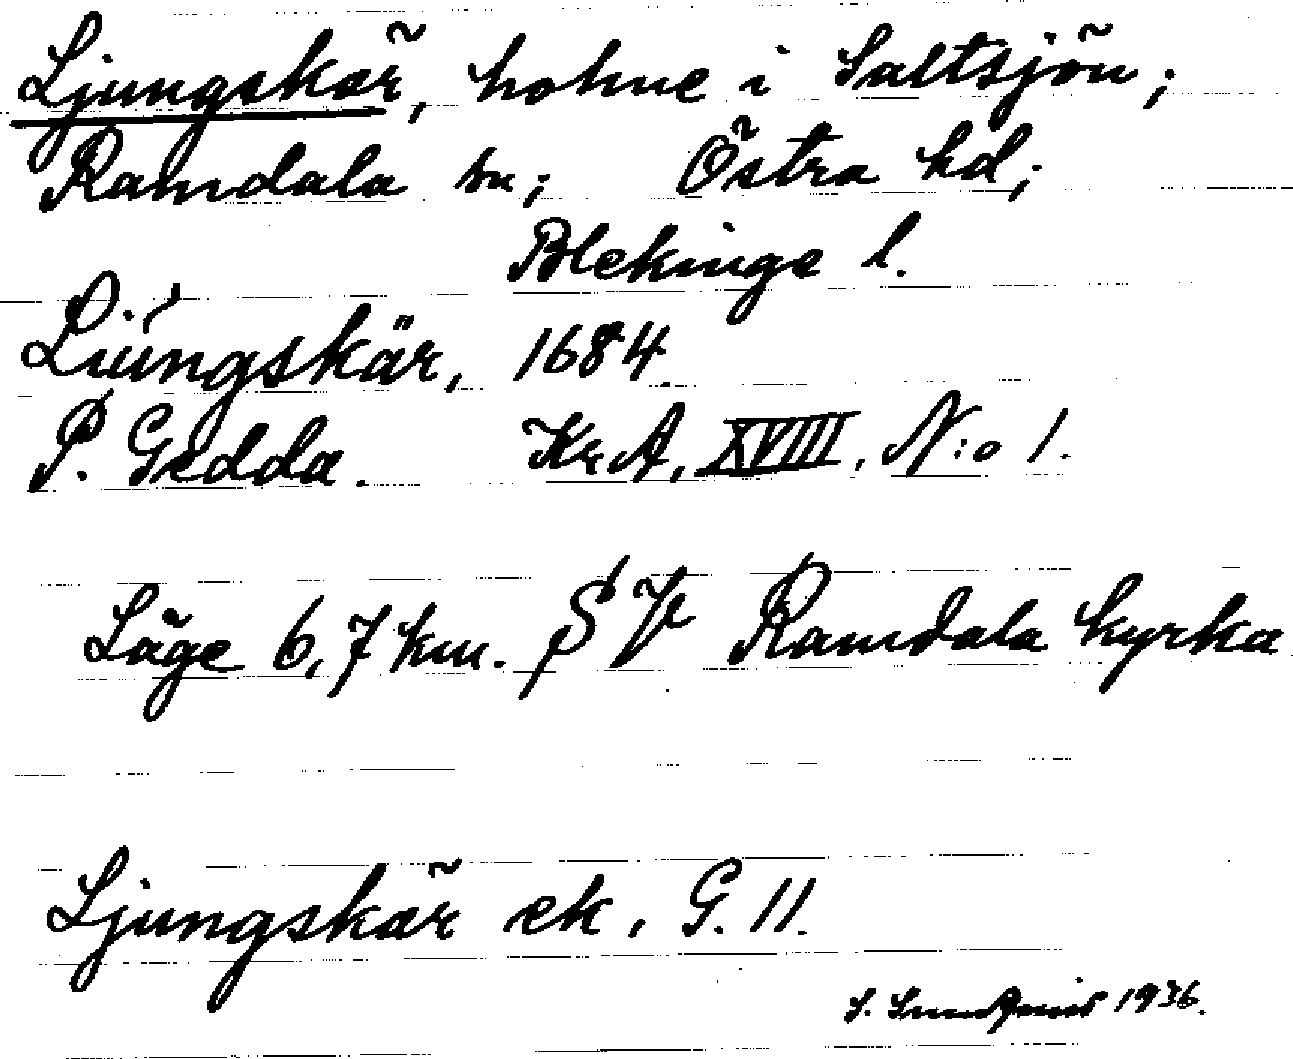 Ljungskär, holme i Saltsjön;
Ramdala sn; Östra hd;
Blekinge l.
Liüngskär, 1684.
P. Gedda. Kr.A, XVIII, N:o 1.
Läge 6,7 km. SV Ramdala kyrka
Ljungskär ek. G. 11.
S. 1936.